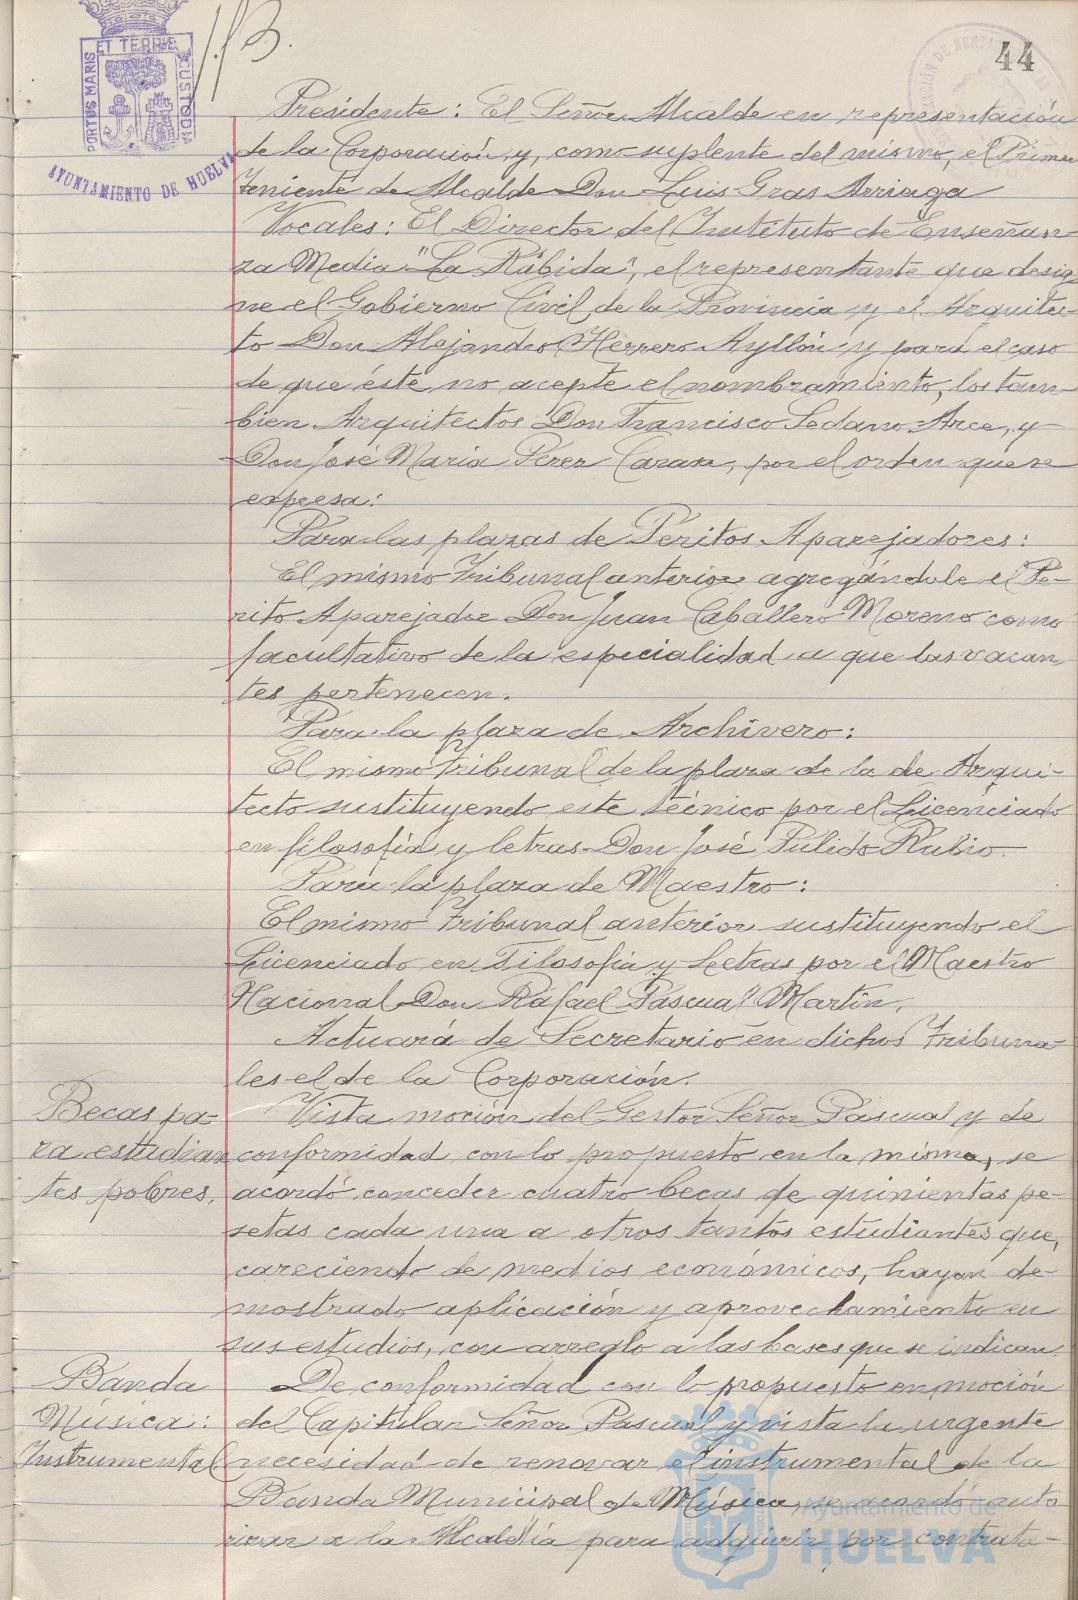 44
PORTUS MARIS ET TERRÆ CUSTODIA
AYUNTAMIENTO DE HUELVA
Presidente: El Señor Alcalde en representación
de la Corporación, y, como suplente del mismo, el Primer
Teniente de Alcalde Don Luis Gras Arriaga
Vocales: El Director del Instituto de Enseñan-
za Media "La Rábida", el representante que desig-
ne el Gobierno Civil de la Provincia y el Arquitec-
to Don Alejandro Herrero Ayllón y para el caso
de que éste no acepte el nombramiento, los tam-
bien Arquitectos Don Francisco Sedano Arce, y
Don José María Pérez Carasa, por el orden que se
expresa:
Para las plazas de Peritos Aparejadores:
El mismo Tribunal anterior agregándole el Pe-
rito Aparejador Don Juan Caballero Moreno como
facultativo de la especialidad a que las vacan-
tes pertenecen.
Para la plaza de Archivero:
El mismo Tribunal de la plaza de la de Arqui-
tecto sustituyendo este técnico por el Licenciado
en filosofía y letras Don José Pulido Rubio.
Para la plaza de Maestro:
El mismo Tribunal anterior sustituyendo el
Licenciado en Filosofía y Letras por el Maestro
Nacional Don Rafael Pascual Martín.
Actuará de Secretario en dichos Tribuna-
les el de la Corporación.
Becas pa-
ra estudian
tes pobres.
Vista moción del Gestor Señor Pascual y de
conformidad con lo propuesto en la misma, se
acordó conceder cuatro becas de quinientas pe-
setas cada una a otros tantos estudiantes que,
careciendo de medios económicos, hayan de-
mostrado aplicación y aprovechamiento en
sus estudios, con arreglo a las bases que se indican.
Banda
Música:
Instrumental
De conformidad con lo propuesto en moción
del Capitular Señor Pascual y vista la urgente
necesidad de renovar el instrumental de la
Banda Municipal de Música, se acordó auto
rizar a la Alcaldía para adquirir por contrata-
Ayuntamiento de
HUELVA